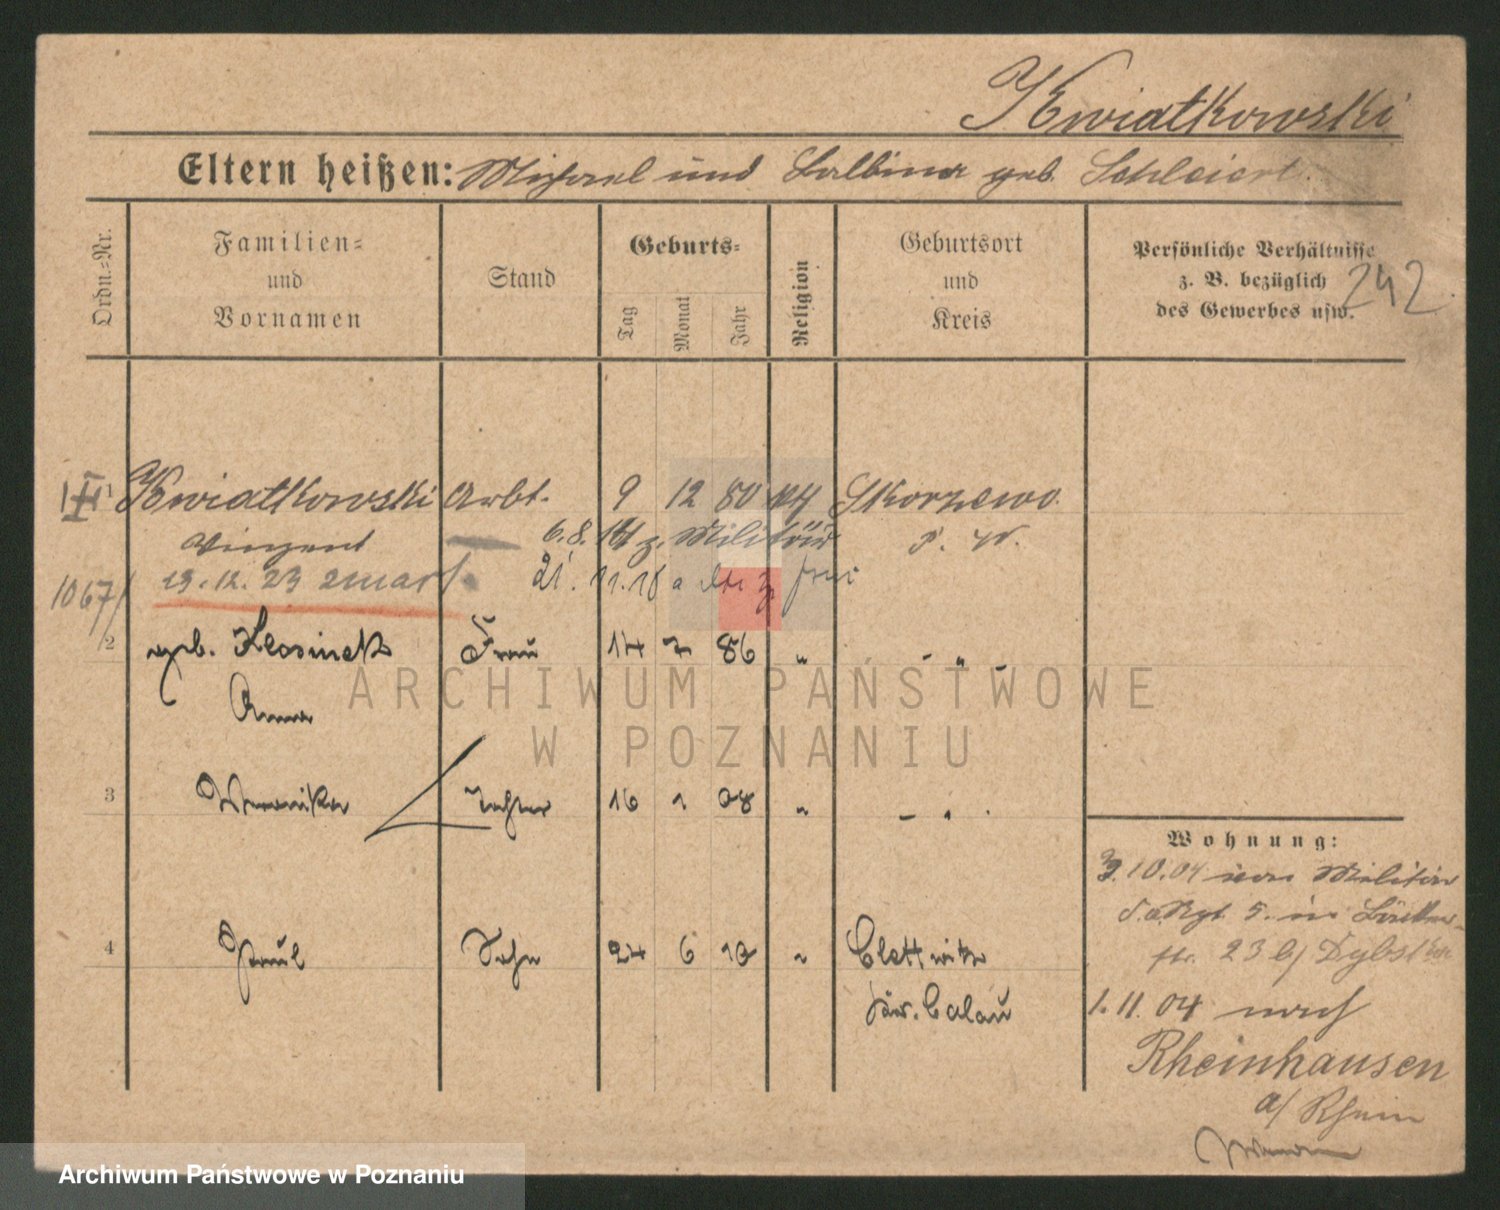 Kwiatkowski
Eltern heißen: Michael und Balbina geb. Schleiert.
Ordn.=Nr.
Familien=
und
Vornamen
Stand
Geburts=
Tag
Monat
Jahr
Religion
Geburtsort
und
Kreis
Persönliche Verhältnisse
z. B. bezüglich
des Gewerbes usw.
242
III 1 Kwiatkowski Arbt. 9 12 80 Skorzewo
Vinzent 6.8.14 z. Militär P. W.
1067/ 19.12.23 zmarł. 21.11.18
2 geb. Klosinek Frau 14 7 86 " - " -
Anna
3 Weronika Tochter 16 1 08 " - " -
4 Paul Sohn 24 6 10 " Clettwitz
Kr. Calau
Wohnung:
3.10.04 von Militär
Rgt. 5. in
str. 23 b/ Dybski
1.11.04 nach
Rheinhausen
a/ Rhein
ARCHIWUM PAŃSTWOWE
W POZNANIU
Archiwum Państwowe w Poznaniu